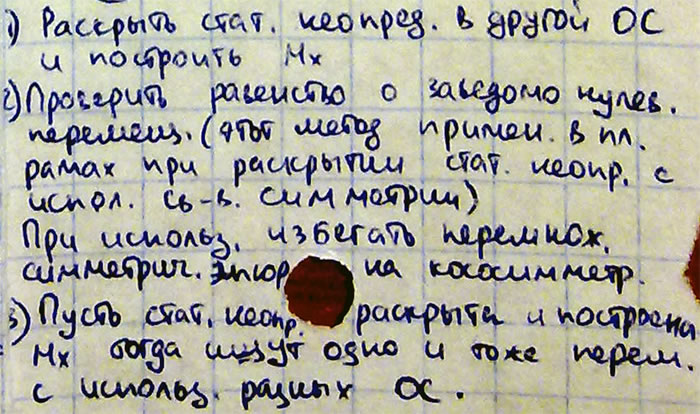 1) Раскрыть стат. неопред. в другой ОС
и построить Mx
2) Проверить равенство о заведомо нулев.
перемещ. (этот метод примен. в пл.
рамах при раскрытии стат. неопр. с
испол. св-в. симметрии)
При использ. избегать перемнож.
симметрич. эпюр на кососимметр.
3) Пусть стат. неопр. раскрыта и построена
Mx тогда ищут одно и тоже перем.
с использ. разных ОС.